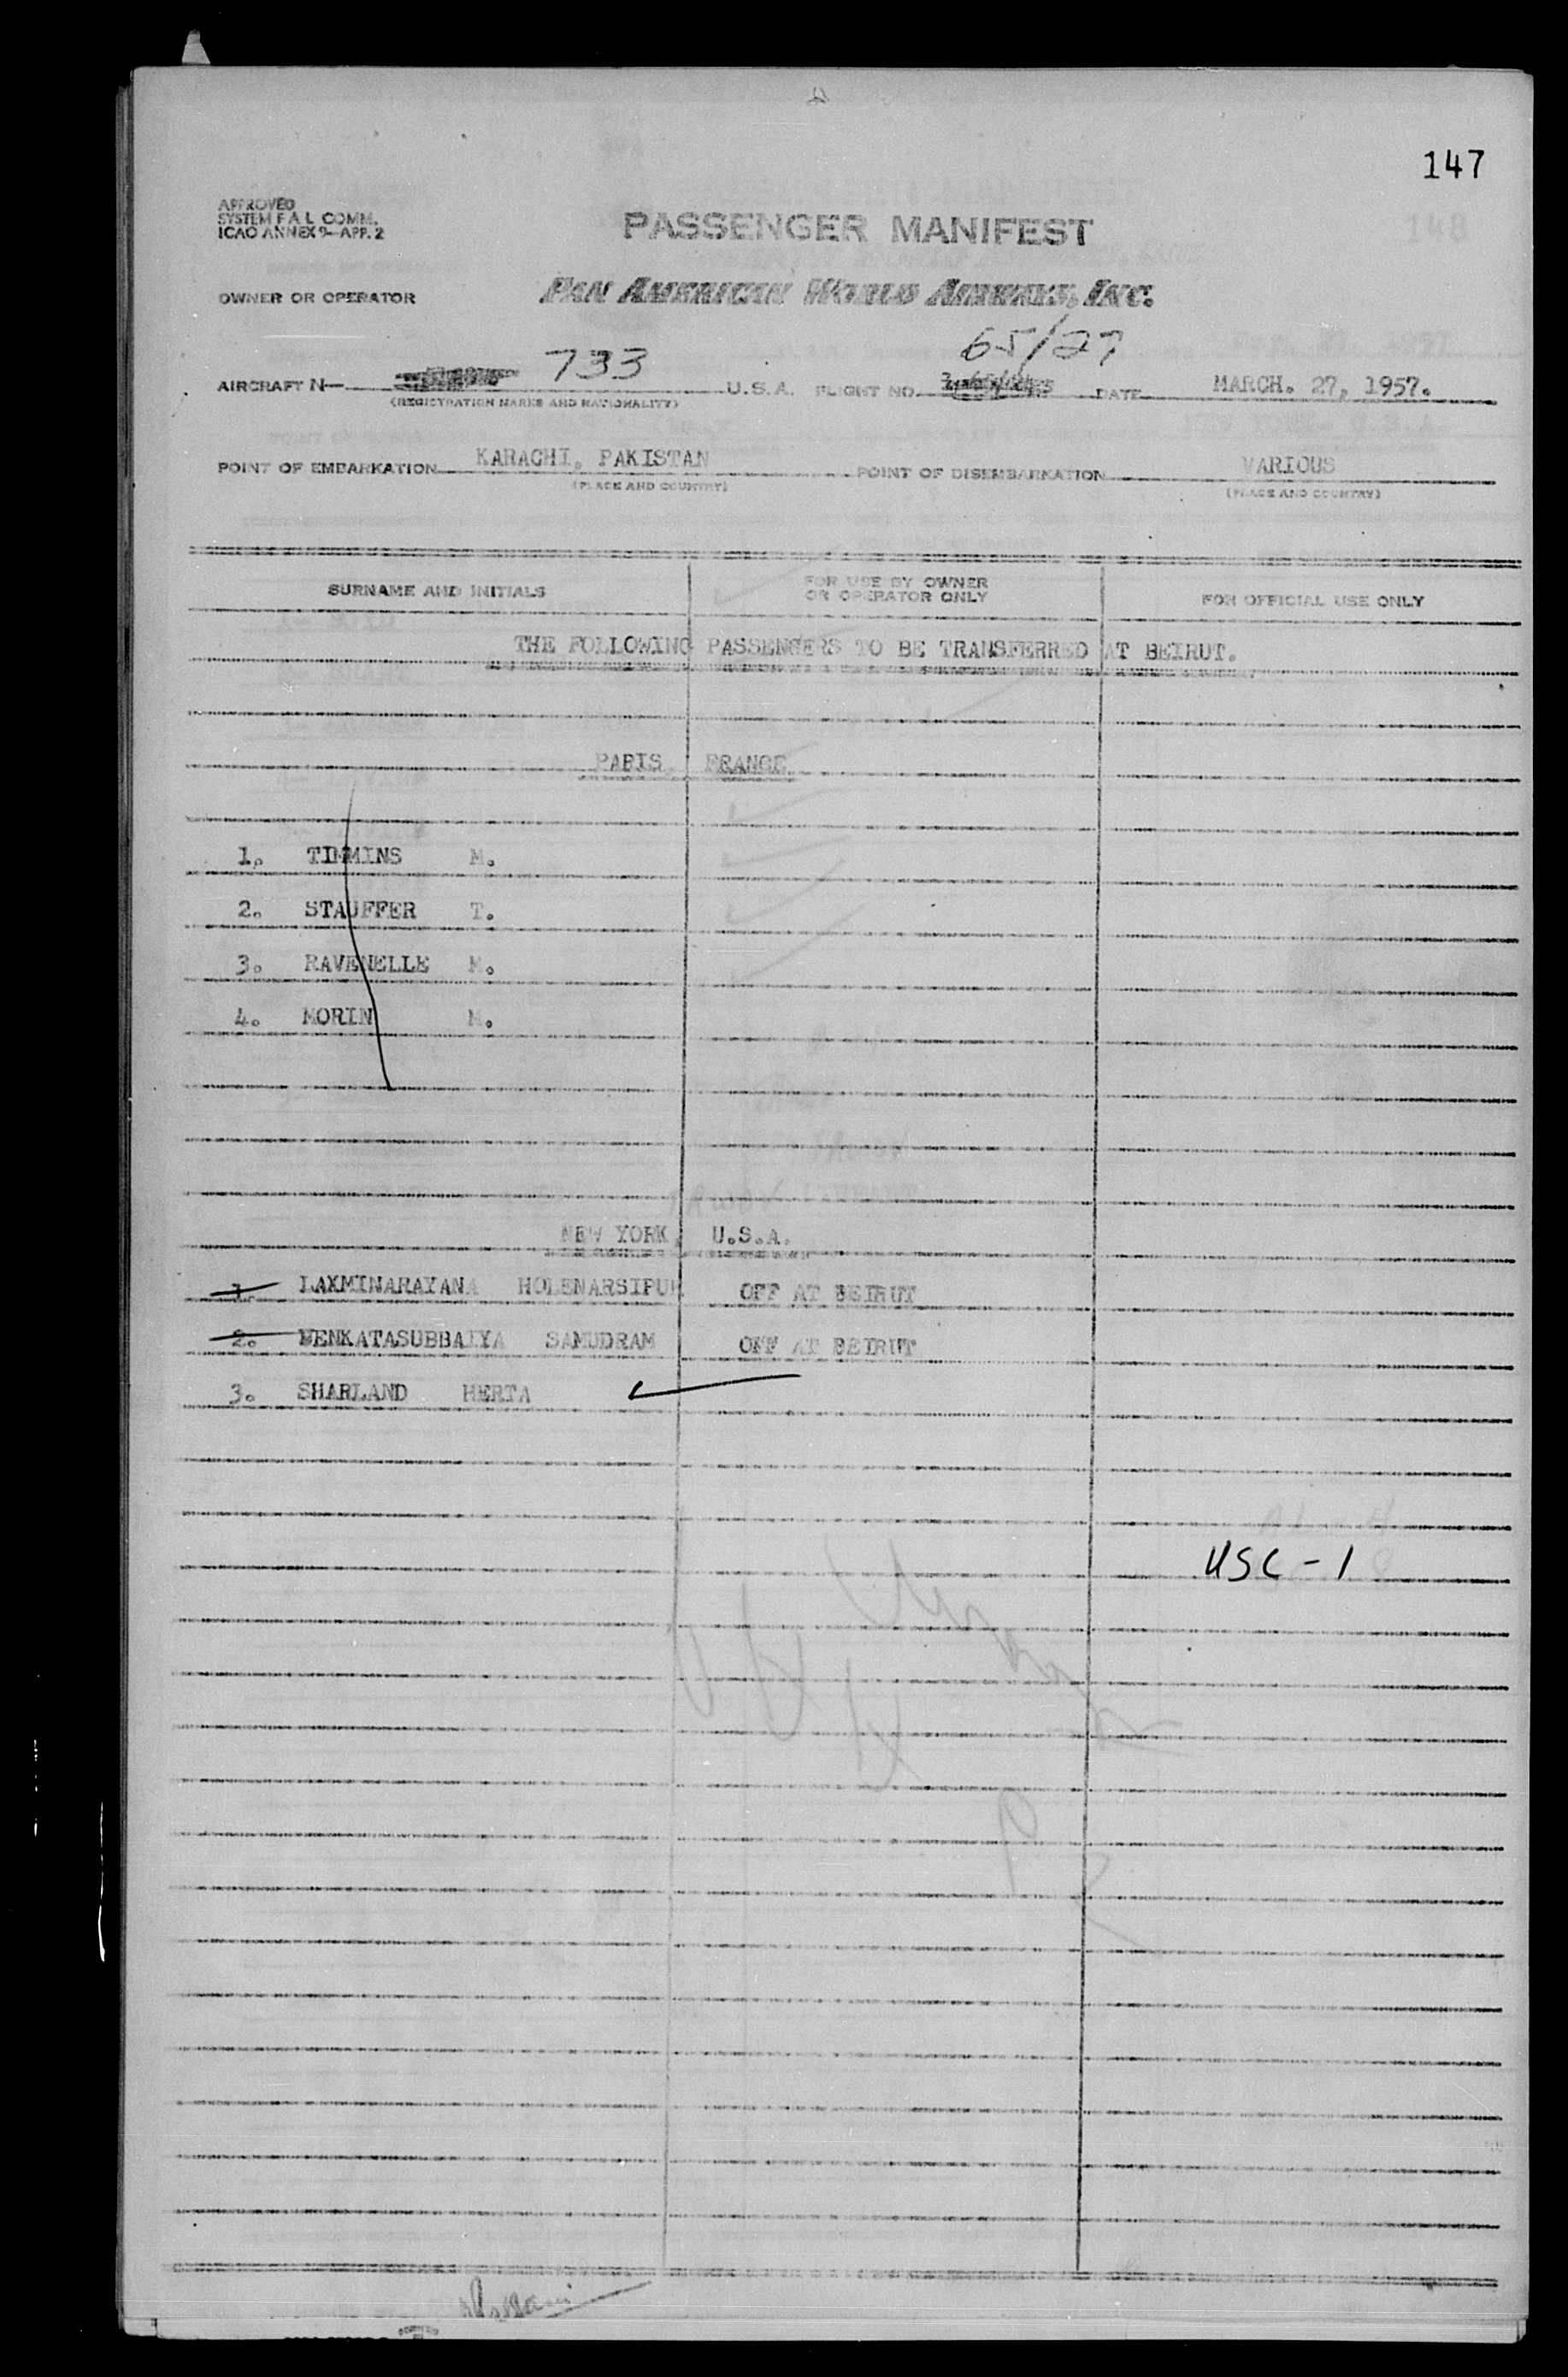 147
APPROVED
SYSTEM F.A.L. COMM.
ICAO ANNEX 9—APP. 2
PASSENGER MANIFEST
OWNER OR OPERATOR PAN AMERICAN WORLD AIRWAYS, INC.
65/27
AIRCRAFT N— 733 U.S.A. FLIGHT NO. DATE MARCH. 27, 1957.
(REGISTRATION MARKS AND NATIONALITY)
POINT OF EMBARKATION KARACHI, PAKISTAN POINT OF DISEMBARKATION VARIOUS
(PLACE AND COUNTRY) (PLACE AND COUNTRY)
SURNAME AND INITIALS FOR USE BY OWNER OR OPERATOR ONLY FOR OFFICIAL USE ONLY
THE FOLLOWING PASSENGERS TO BE TRANSFERRED AT BEIRUT.
PARIS, FRANCE
1. TIMMINS M.
2. STAUFFER T.
3. RAVENELLE M.
4. MORIN M.
NEW YORK, U.S.A.
1. LAXMINARAYANA HOLENARSIPUR OFF AT BEIRUT
2. VENKATASUBBAIYA SAMUDRAM OFF AT BEIRUT
3. SHARLAND HERTA
USC-1